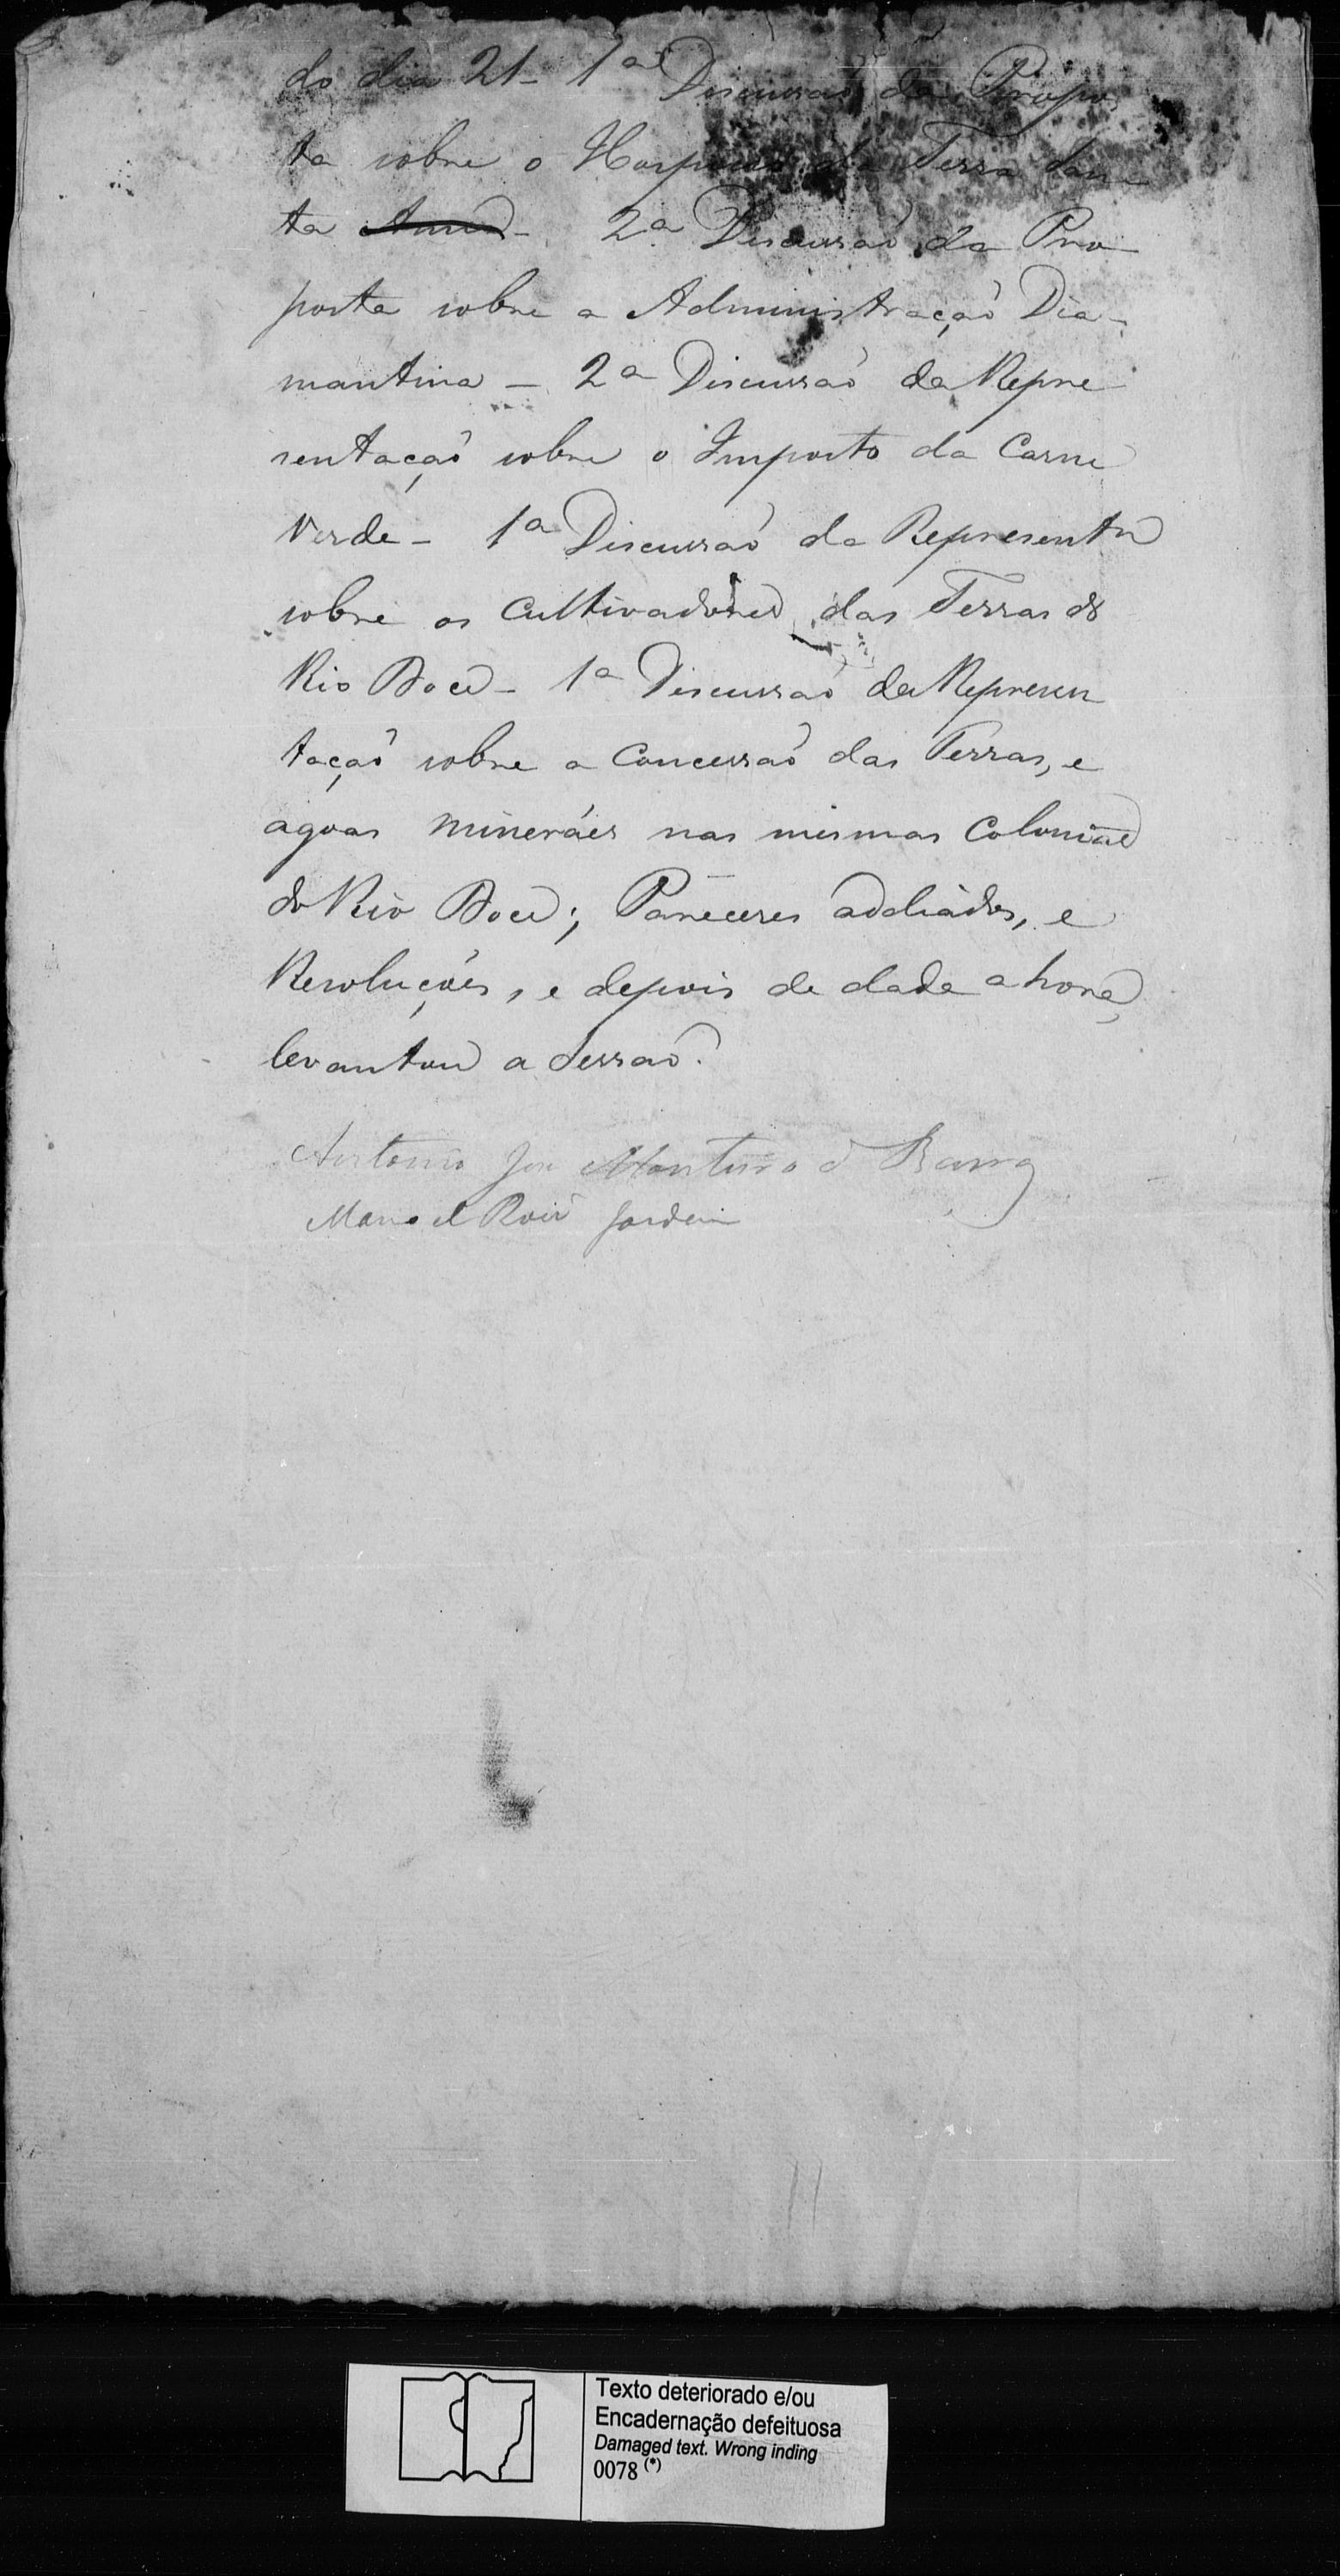 do dia 21 - 1ª Discussaõ da Propos
ta sobre o Hospicio da Terra San
ta - 2ª Discussaõ da Pro
posta sobre a Administraçaõ Dia-
mantina - 2ª Discussaõ da Repre
sentaçaõ sobre o Imposto da Carne
Verde - 1ª Discussaõ da Represent.m
sobre os Cultivadores das Terras do
Rio Doce - 1ª Discussaõ da Represen
taçaõ sobre a Concessaõ das Terras, e
agoas mineráes nas mesmas Colonias
do Rio Doce; Pareceres addiádos, e
Resoluçoẽs, e depois de dada a hora
levantou a Sessaõ.
Antonio Jose Monteiro de Barros
Manoel Roiz Jardim
Texto deteriorado e/ou
Encadernação defeituosa
Damaged text. Wrong inding
0078 (*)